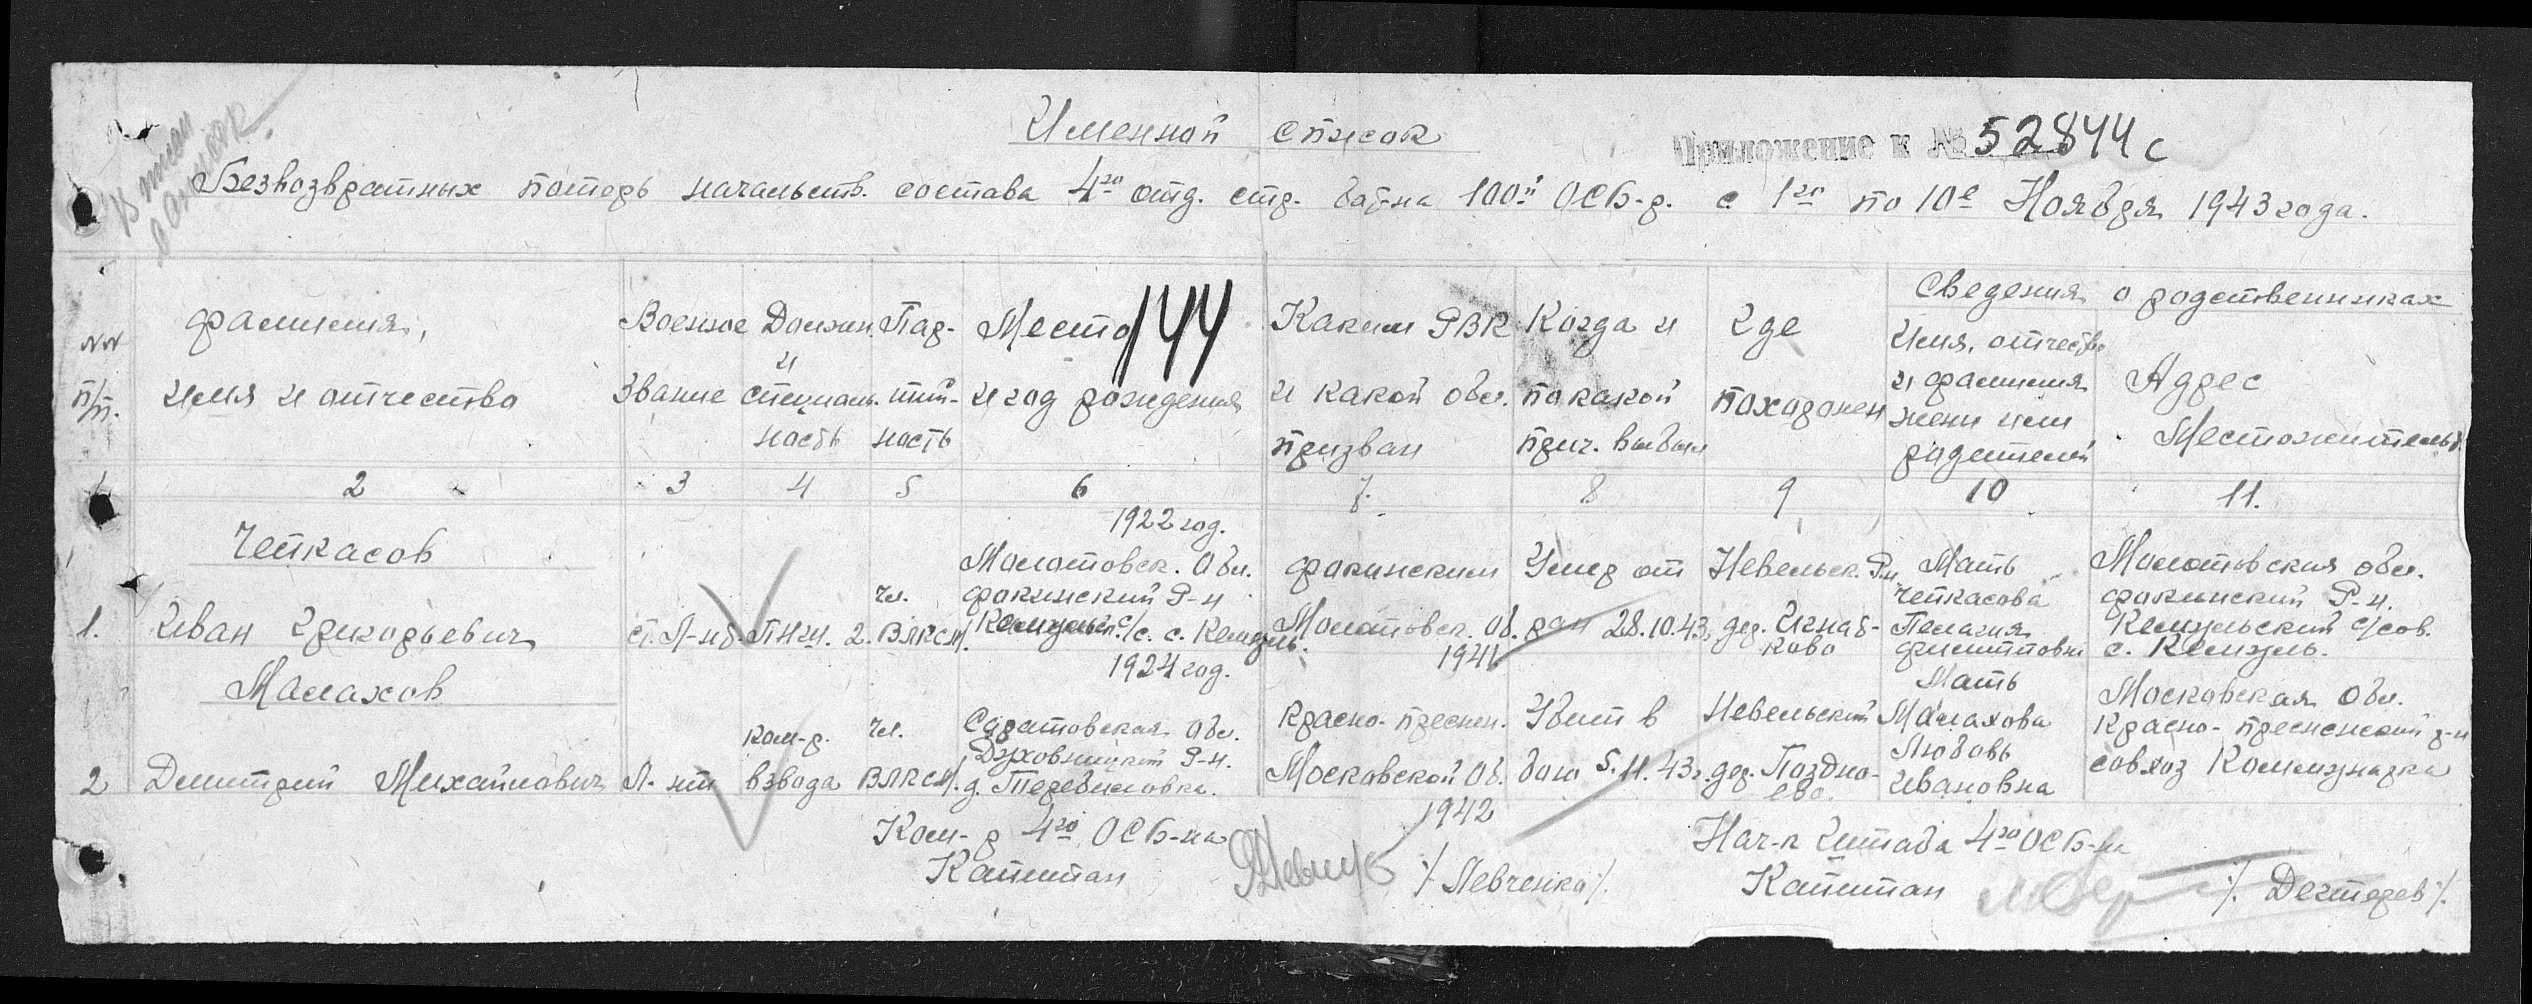 Именной список
Приложение к № 52844с
Безвозвратных потерь начальств. состава 4го отд. стр. бат-на 100й ОСБ-р. с 1го по 10е Ноября 1943 года.
144
№№ п/п.
фамилия,
имя и отчество
Военное
Звание
Должн.
и
специаль-
ность
Пар-
тий-
ность
Место
и год рождения
Каким РВК
и какой обл.
призван
Когда и
по какой
прич. выбыл
Где
похоронен
Сведения о родственниках
Имя, отчество
и фамилия
жены или
родителей
Адрес
Местожительст.
1 2 3 4 5 6 7. 8 9 10 11.
1.
Чепкасов
Иван Григорьевич
ст. Л-нт.
ПНШ. 2.
чл.
ВЛКСМ.
1922 год.
Молотовск. Обл.
фокинский Р-н
Кемульск. с/с. с. Кемуль.
фокинским
Молотовск. Об.
1941
Умер от
ран 28.10.43г.
Невельск. Р-н.
дер. Игнат-
ково
Мать
Чепкасова
Пелагия
филипповна
Молотовская обл.
фокинский Р-н.
Кемульский с/сов.
с. Кемуль.
2
Малахов
Дмитрий Михайлович
Л-нт
ком-р.
взвода
чл.
ВЛКСМ.
1924 год.
Саратовская Обл.
Духовницкий Р-н.
д. Теребиловка.
Красно-преснен.
Московской Об.
1942
Убит в
бою 5.11.43г.
Невельский
дер. Поздно-
ево.
Мать
Малахова
Любовь
Ивановна
Московская Обл.
Красно-пресненский р-н
совхоз Коммунарка
Ком-р 4го ОСБ-на
Капитан
/Левченко/.
Нач-к Штаба 4го ОСБ-на
Капитан
/Дегтерев/.